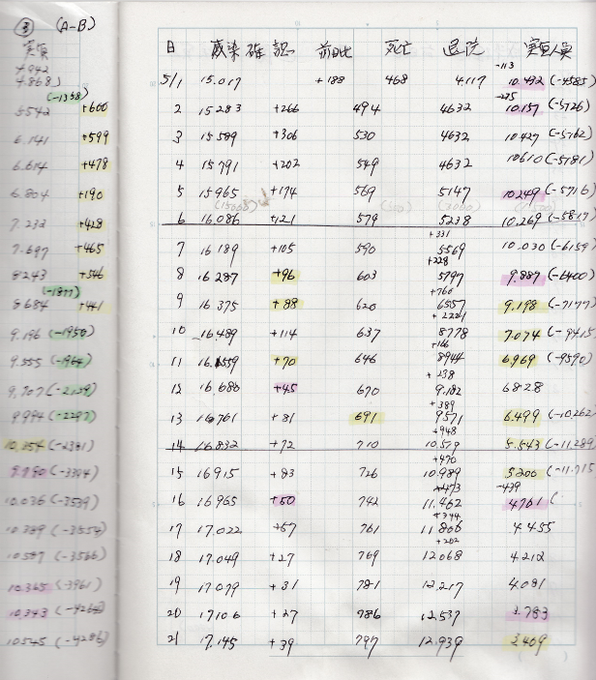 ③ (A-B)
実質
4942
4.868)
(-1358)
6542 +600
6.141 +599
6.614 +478
6.804 +190
7.232 +428
7.697 +465
8243 +546
(-1877)
8684 +441
9.196 (-1950)
9.555 (-1964)
9.707 (-2139)
9994 (-2297)
10.254 (-2381)
9.790 (-3304)
10.036 (-3539)
10.389 (-3554)
10.587 (-3566)
10.365 (-3961)
10.343 (-4264)
10.545 (-4286)
日 感染確認 前日比 死亡 退院 実質人員
-113
5/1 15.017 +188 468 4.117 10.432 (-4585)
-275
2 15283 +266 494 4632 10.157 (-5126)
3 15589 +306 530 4632 10.427 (-5162)
4 15.791 +202 549 4632 10610 (-5181)
5 15.965 +174 569 5147 10.249 (-5716)
6 16.086 +121 579 5238 10.269 (-5817)
+331
7 16189 +105 590 5569 10.030 (-6159)
+228
8 16287 +96 603 5797 9.887 (-6400)
+760
9 16375 +88 620 6557 9.198 (-7177)
+2221
10 16.489 +114 637 8778 7.074 (-9415)
+166
11 16.559 +70 646 8944 6.969 (-9590)
+238
12 16.680 +45 670 9.182 6828
+389
13 16761 +81 691 9571 6.499 (-10.262)
+948
14 16.832 +72 710 10.519 5.543 (-11.289)
+470
15 16915 +83 726 10.989 5200 (-11.715
+473 -439
16 16.965 +50 742 11.462 4761 (
+344
17 17.022 +57 761 11.806 4.455
+262
18 17.049 +27 769 12068 4.212
19 17.079 +31 781 12.217 4.081
20 17.106 +27 786 12.537 3.783
21 17.145 +39 797 12.939 3.409